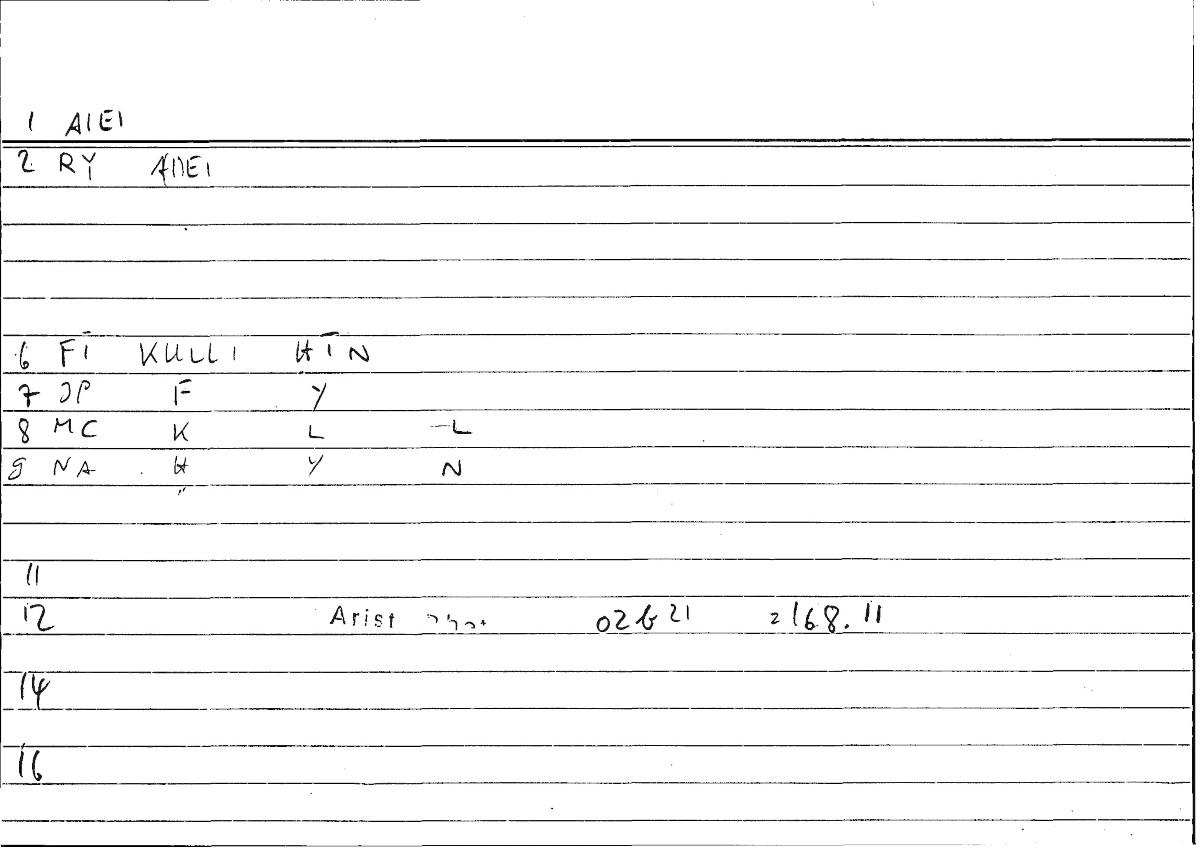 1 AIEI
2 RY AIIEI
6 FĪ KULLI HĪN
7 JP F Y
8 MC K L -L
9 NA H Y N
"
11
12 Arist 02621 2168.11
14
16